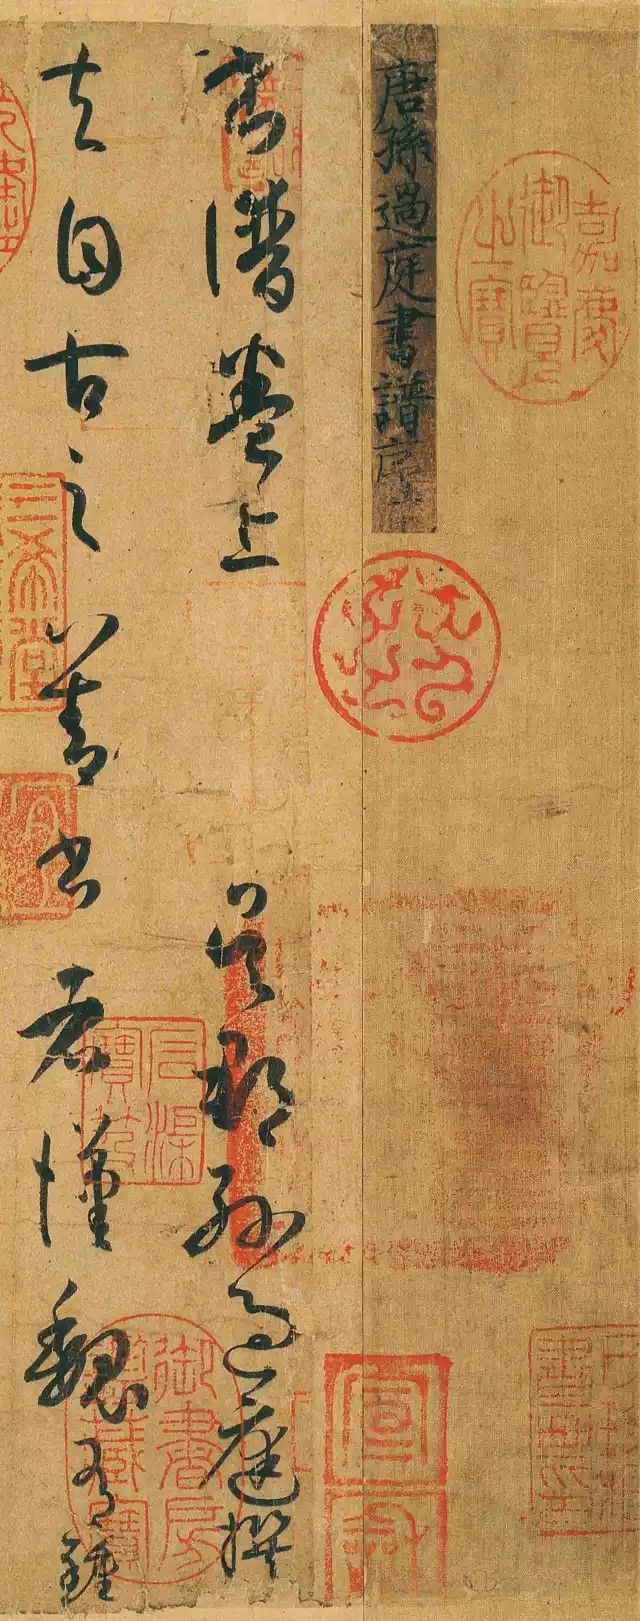 嘉慶御覽之寶
唐孫過庭書譜序
書譜卷上 吳郡孫過庭撰
夫自古之善書者漢魏有鍾
宣和
石渠寶笈
御書房鑑藏寶
三希堂